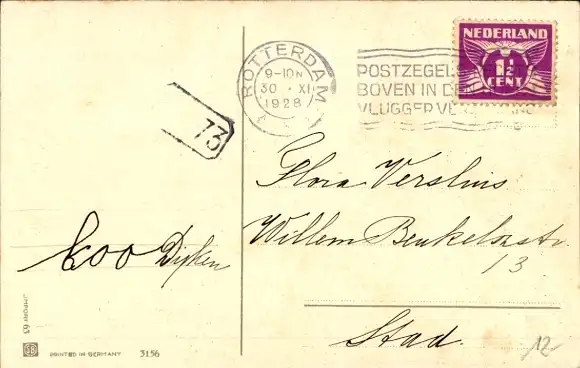 NEDERLAND
1½
CENT
ROTTERDAM
9-10 N
30 · XI
1928
POSTZEGELS
BOVEN IN DE
VLUGGER VE
73
Flora Versluis
Willem Beukelszstr
13
Stad.
Coo Dijken
PRINTED IN GERMANY
3156
12